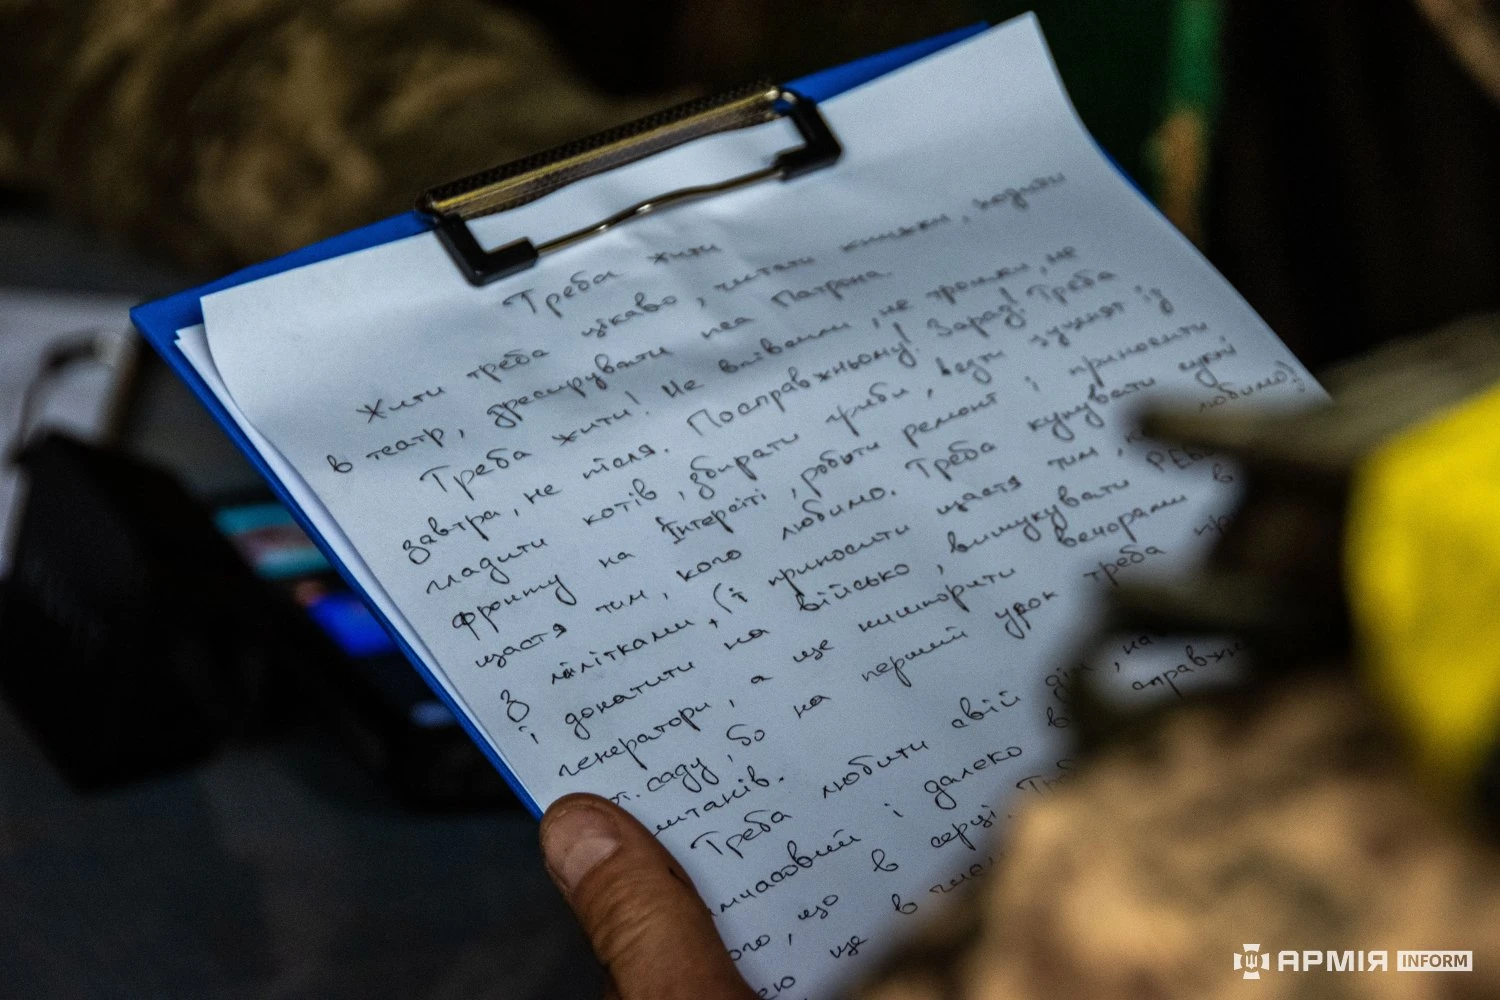 Треба жити
Жити треба цікаво, читати книжки, ходити
в театр, дресирувати пса Патрона.
Треба жити! Не впівсили, не трошки, не
завтра, не після. Посправжньому! Зараз! Треба
гладити котів, збирати гриби, вести зуми з
фронту на Інтерсіті, робити ремонт і приносити
щастя тим, кого любимо. Треба купувати сукні
з лілітками, (і приносити щастя тим, любимо)
і донатити на військо, вишукувати РЕБ
генератори, а ще кишторити вечорами в
саду, бо на перший урок треба
штанів.
Треба любити свій дім, на
имчасовий і далеко в справжн
ого, що в серці. Тр
ею ще в
АРМІЯ INFORM